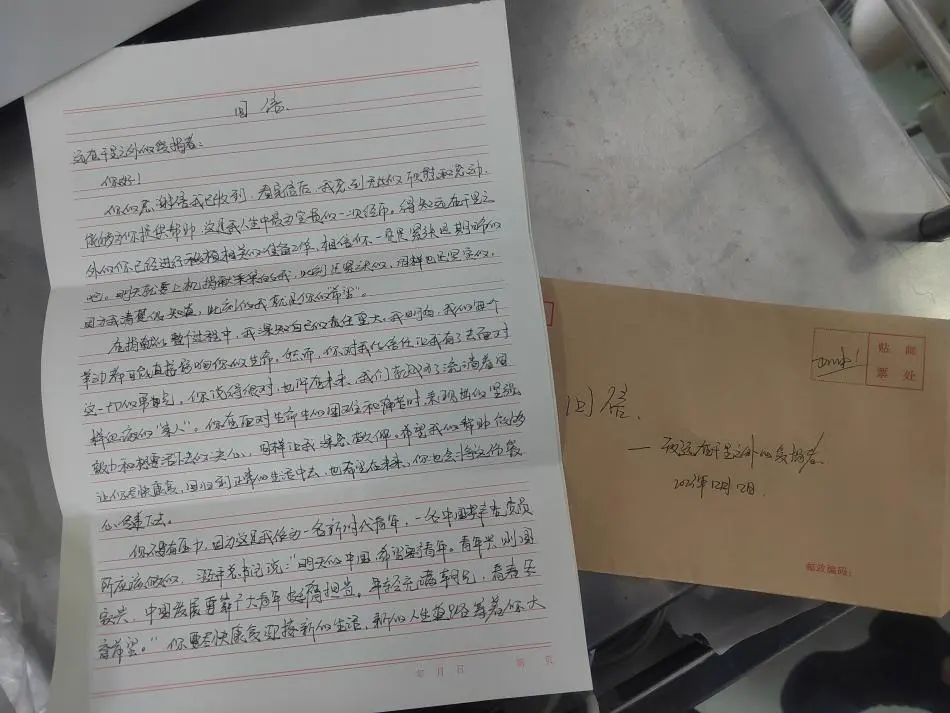 回信
远在千里之外的受捐者：
你好！
你的感谢信我已收到，看完信后，我感到无比的欣慰和感动，
能够为你提供帮助，这是我人生中最为宝贵的一次经历。得知远在千里之
外的你已经进行移植相关的准备工作，相信你一定是紧张且期待的
吧。明天就要上机捐献的我，此刻是紧张的，同样也是坚定的，
因为我清楚的知道，此刻的我就是你的希望”。
在捐献的整个过程中，我深知自己的责任重大，我明白，我的每个
举动都可能直接影响你的生命。然而，你对我的信任让我有了去面对
这一切的勇气。你说得很对，也许在未来，我们就成了流淌着同
样血液的“亲人”。你在面对生命中的困难和痛苦时，表现出的坚强
毅力和想要活下去的决心，同样让我深感敬佩。希望我的帮助能够
让你尽快康复，回归到正常的生活中去，也希望在未来，你也会将这份爱
心传递下去。
你不要有压力，因为这是我作为一名新时代青年，一名中国共产党党员
所应该做的，习近平总书记说：“明天的中国，希望寄予青年。青年兴则国
家兴，中国发展要靠广大青年挺膺担当。年轻充满朝气，青春孕
育希望。”你要尽快康复，迎接新的生活，新的人生道路等着你大
年 月 日 第 页
贴 邮
票 处
回信
—致远在千里之外的受捐者
2023年12月12日.
邮政编码：